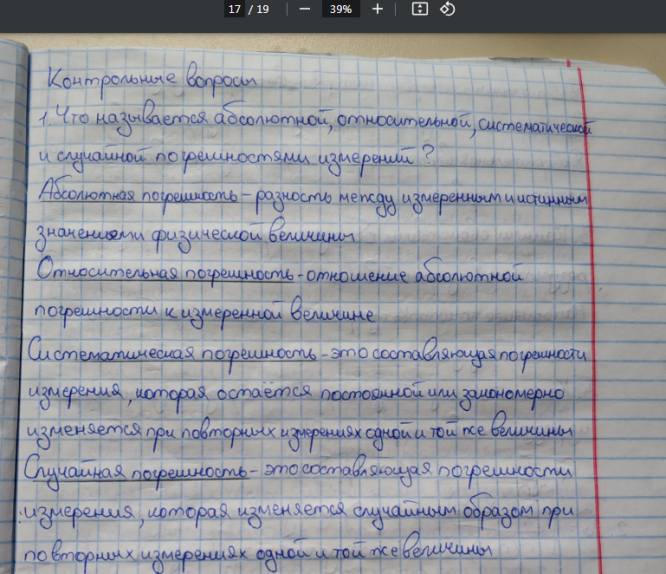 17 / 19 39%
Контрольные вопросы
1. Что называется абсолютной, относительной, систематической
и случайной погрешностями измерений?
Абсолютная погрешность - разность между измеренным и истинным
значениями физической величины
Относительная погрешность - отношение абсолютной
погрешности к измеренной величине
Систематическая погрешность - это составляющая погрешности
измерения, которая остаётся постоянной или закономерно
изменяется при повторных измерениях одной и той же величины
Случайная погрешность - это составляющая погрешности
измерения, которая изменяется случайным образом при
повторных измерениях одной и той же величины